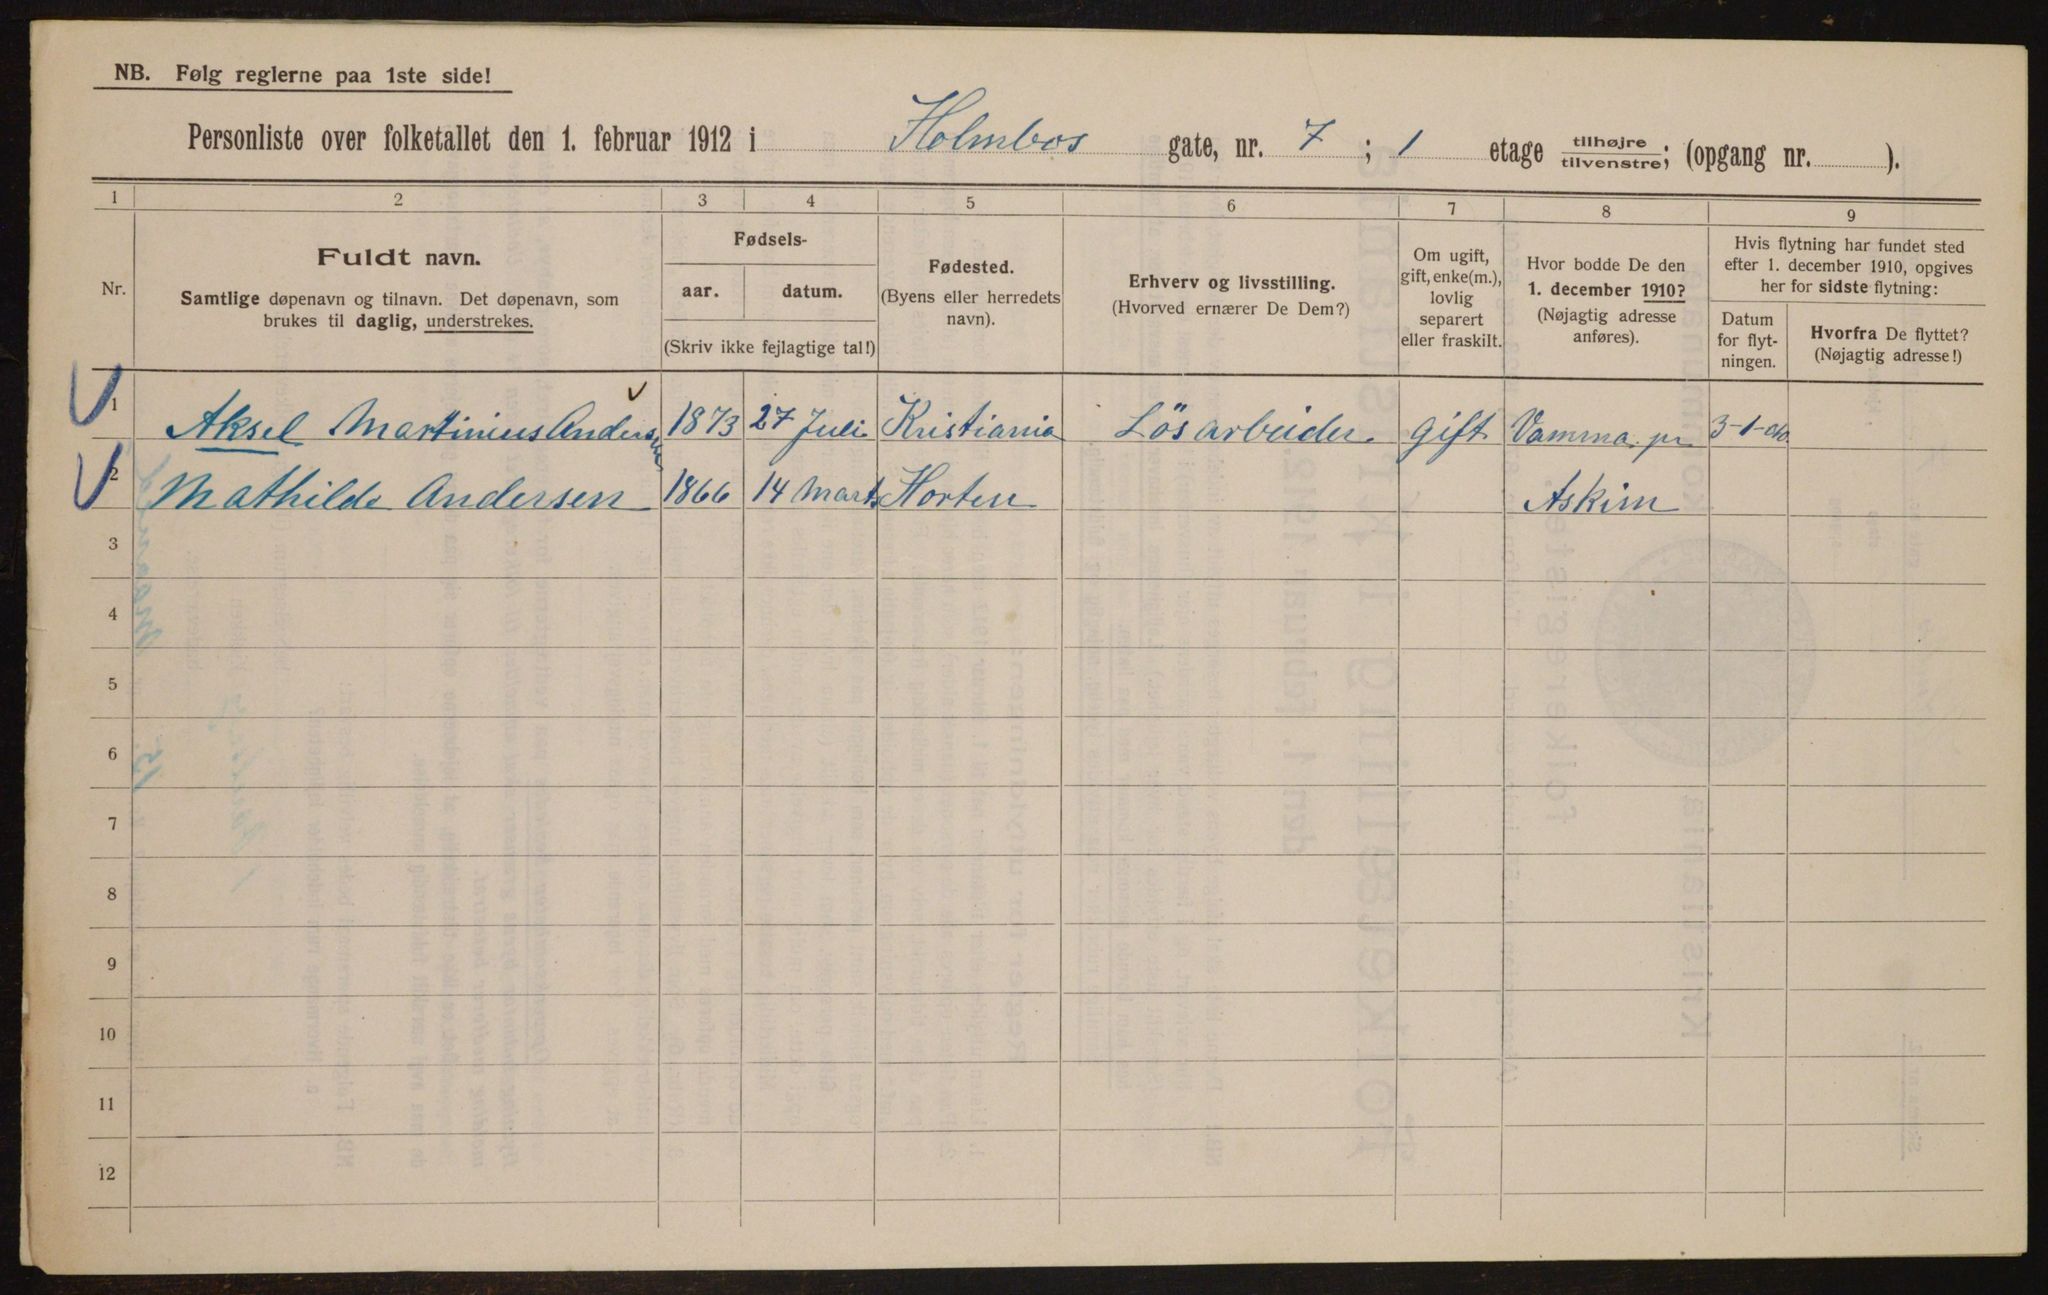 NB. Følg reglerne paa 1ste side!
Personliste over folketallet den 1. februar 1912 i Holmbos gate, nr. 7 ; 1 etage tilhøjre/tilvenstre; (opgang nr. ).
1 2 3 4 5 6 7 8 9
Nr.
Fuldt navn.
Samtlige døpenavn og tilnavn. Det døpenavn, som
brukes til daglig, understrekes.
Fødsels-
aar. datum.
(Skriv ikke fejlagtige tal!)
Fødested.
(Byens eller herredets
navn).
Erhverv og livsstilling.
(Hvorved ernærer De Dem?)
Om ugift,
gift, enke(m.),
lovlig
separert
eller fraskilt.
Hvor bodde De den
1. december 1910?
(Nøjagtig adresse
anføres).
Hvis flytning har fundet sted
efter 1. december 1910, opgives
her for sidste flytning:
Datum
for flyt-
ningen.
Hvorfra De flyttet?
(Nøjagtig adresse!)
1 Aksel Martinius Andersen 1873 27 Juli Kristiania Lösarbeider gift Vamma pr 3-1-
2 Mathilde Andersen 1866 14 Marts Horten Askim
3
4
5
6
7
8
9
10
11
12